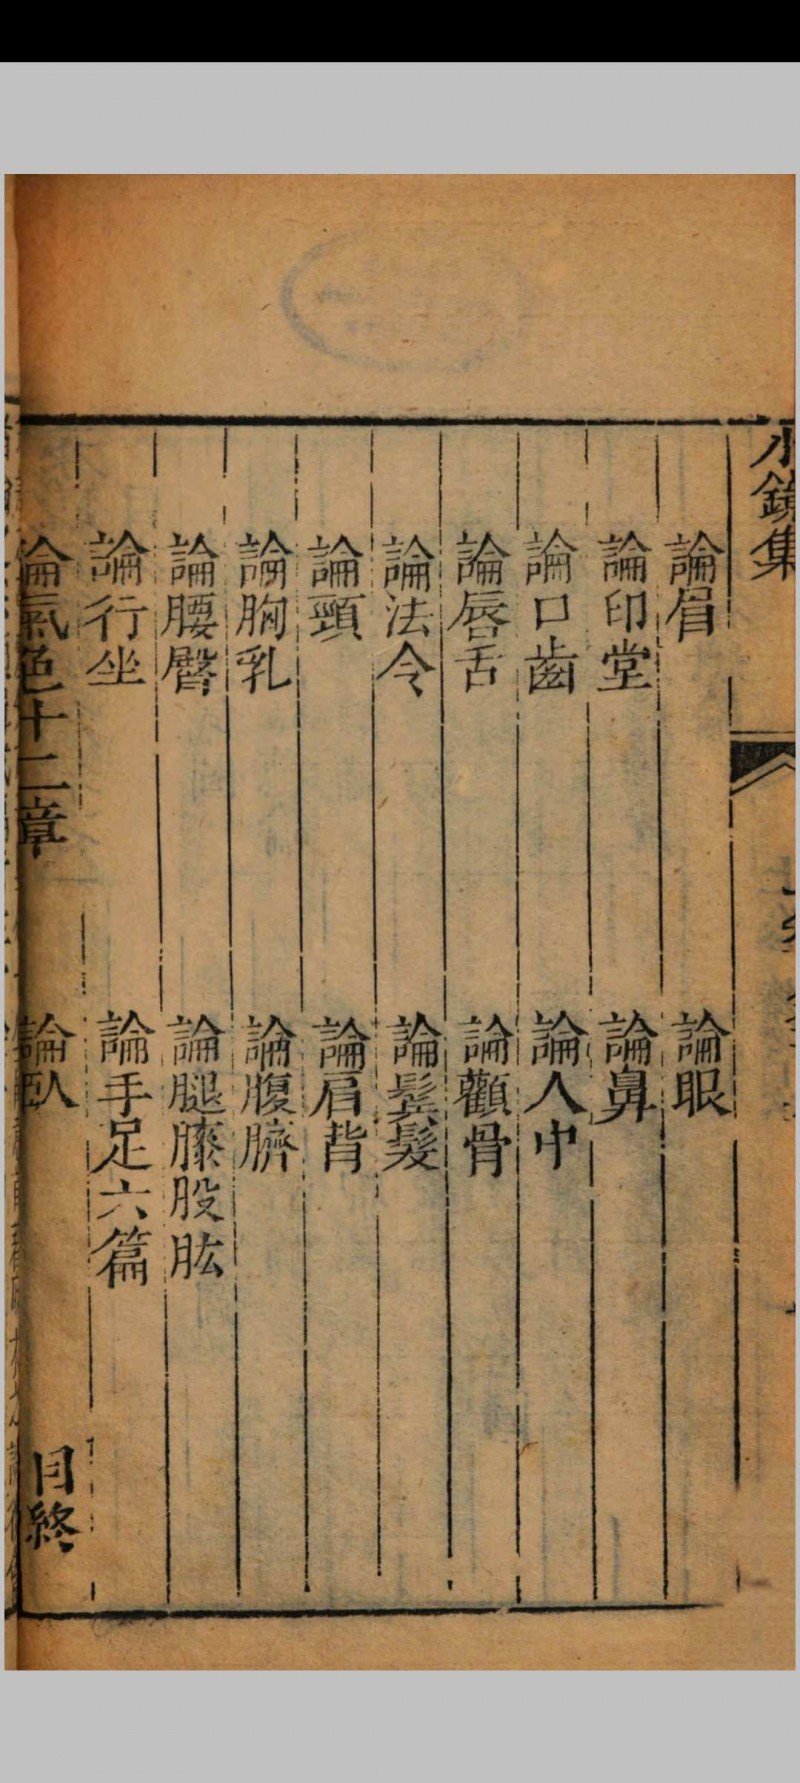 小鏡集
論眉 論眼
論印堂 論鼻
論口齒 論人中
論唇舌 論顴骨
論法令 論鬂髮
論頸 論肩背
論胸乳 論腹臍
論腰臀 論腿膝股肱
論行坐 論手足六篇
論氣色十二章 論臥 目終